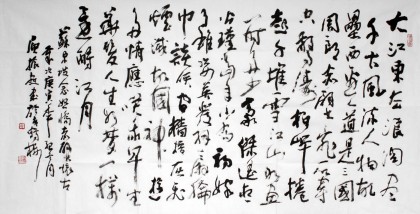 大江東去浪淘盡
千古風流人物故
壘西邊人道是三國
周郎赤壁亂石穿
空驚濤拍岸捲
起千堆雪江山如畫
一時多少豪傑遙想
公瑾當年小喬初嫁
了雄姿英發羽扇綸
巾談笑間檣櫓灰飛
煙滅故國神遊
多情應笑我早生
華髮人生如夢一樽
還酹江月
蘇東坡念奴嬌赤壁懷古
庚寅年